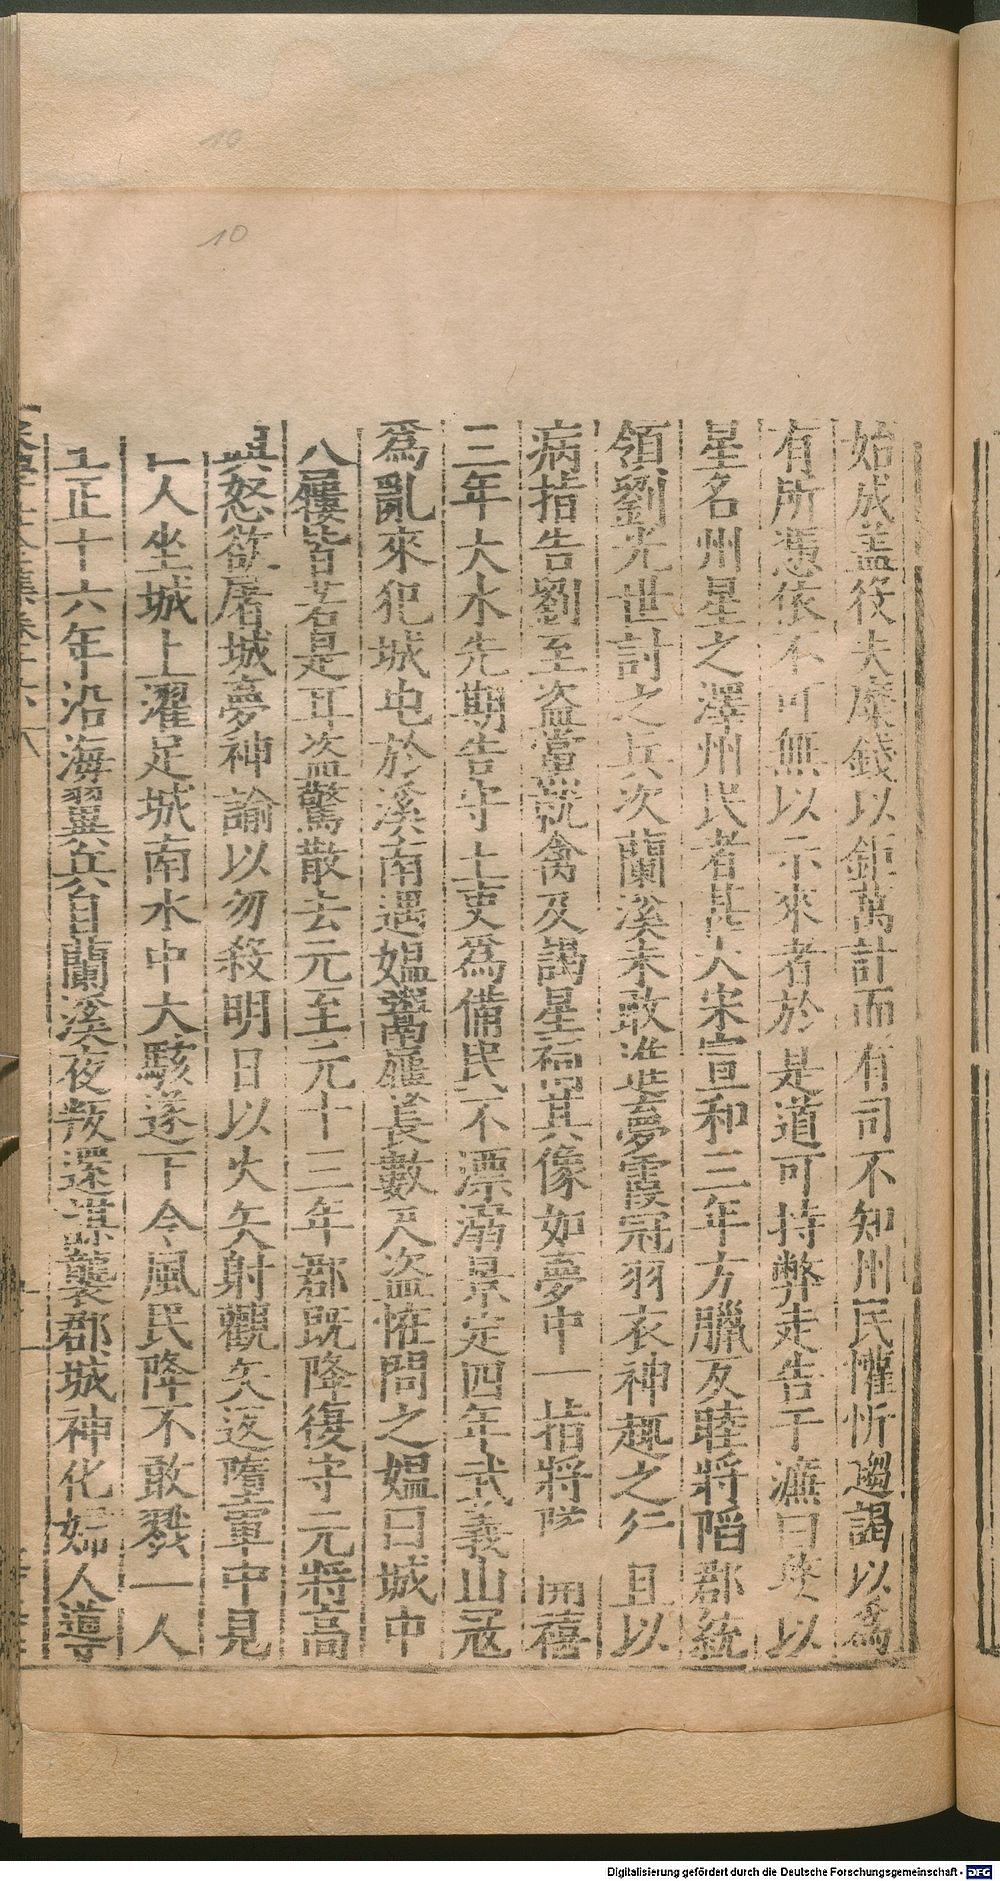 始成盖役夫縻錢以鉅萬計而有司不知州民懽忻趨謁以為
有所憑依不可無以示來者於是道可持幣走告于濂曰婺以
星名州星之澤州民者甚大宋宣和三年方臘反睦將陷郡統
領劉光世討之兵次蘭溪未敢進夢霞冠羽衣神趣之行且以
病指告劉至盜當就禽及謁星祠其像如夢中一指將隊開禧
三年大水先期告守土吏為備民不漂溺景定四年武義山冦
為亂來犯城屯於溪南遇媼鬻屨長數尺盜恠問之媼曰城中
人屨皆若是耳盜驚散去元至元十三年郡既降復守元將高
興怒欲屠城夢神諭以勿殺明日以火矢射觀矢返墮軍中見
一人坐城上濯足城南水中大駭遂下令風民降不敢戮一人
至正十六年沿海翼兵自蘭溪夜叛還謀襲郡城神化婦人導
10
10
Digitalisierung gefördert durch die Deutsche Forschungsgemeinschaft - DFG